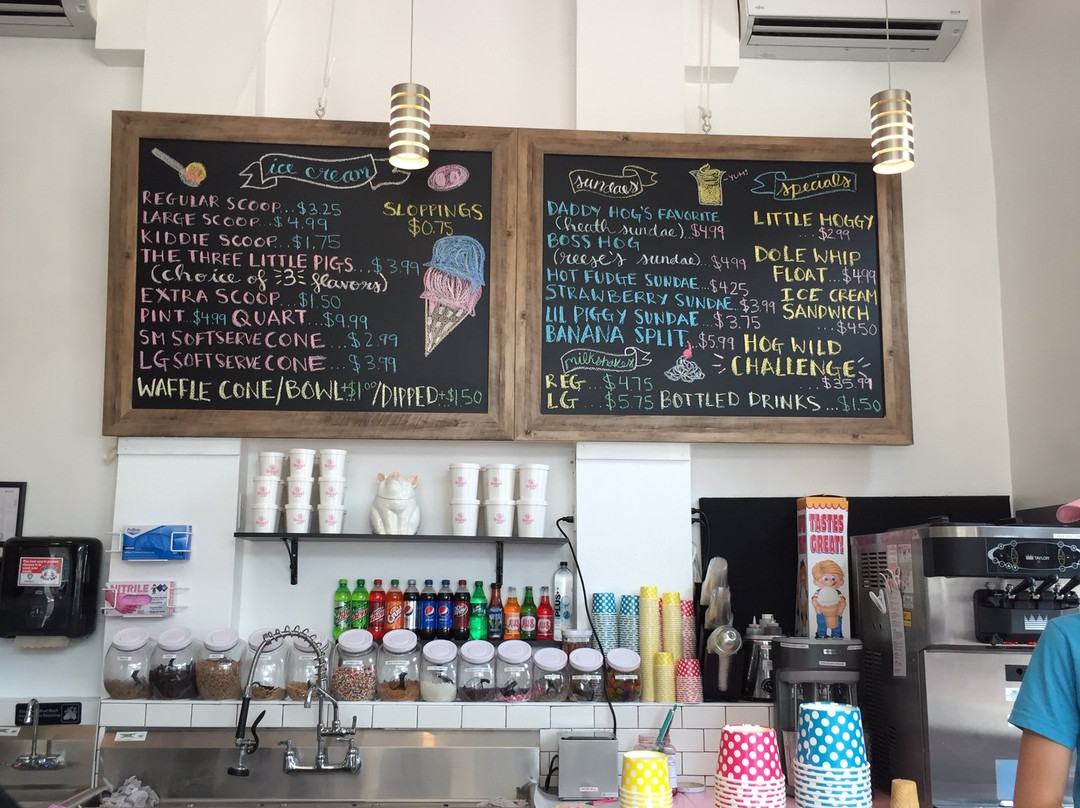 ice cream
REGULAR SCOOP...$3.25
LARGE SCOOP...$4.99
KIDDIE SCOOP...$1.75
THE THREE LITTLE PIGS...$3.99
(choice of 3 flavors)
EXTRA SCOOP...$1.50
PINT..$4.99 QUART...$9.99
SM SOFTSERVE CONE ...$2.99
LG SOFTSERVE CONE ...$3.99
WAFFLE CONE/BOWL+$1.00/DIPPED+$1.50
SLOPPINGS
$0.75
sundaes
-YUM!
DADDY HOG'S FAVORITE
(heath sundae)..$4.99
BOSS HOG
(reese's sundae)..$4.99
HOT FUDGE SUNDAE...$4.25
STRAWBERRY SUNDAE..$3.99
LIL PIGGY SUNDAE...$3.75
BANANA SPLIT...$5.99
milkshakes
REG...$4.75
LG...$5.75
specials
LITTLE HOGGY
...$2.99
DOLE WHIP
FLOAT...$4.99
ICE CREAM
SANDWICH
...$4.50
HOG WILD
CHALLENGE
...$35.99
BOTTLED DRINKS...$1.50
NITRILE
pepsi
PLUS
TASTES
GREAT!
TAYLOR